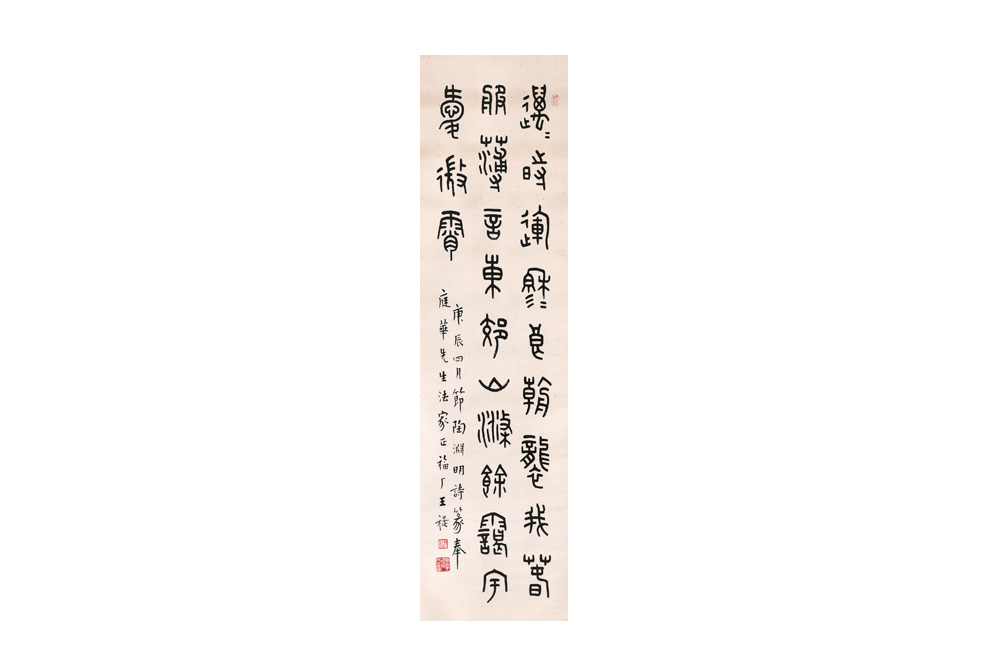 邁〻時運穆〻良朝襲我萅
服薄言東郊山滌餘靄宇
愛微霄
庚辰四月節陶淵明詩篆奉
庭華先生法家正福厂王禔